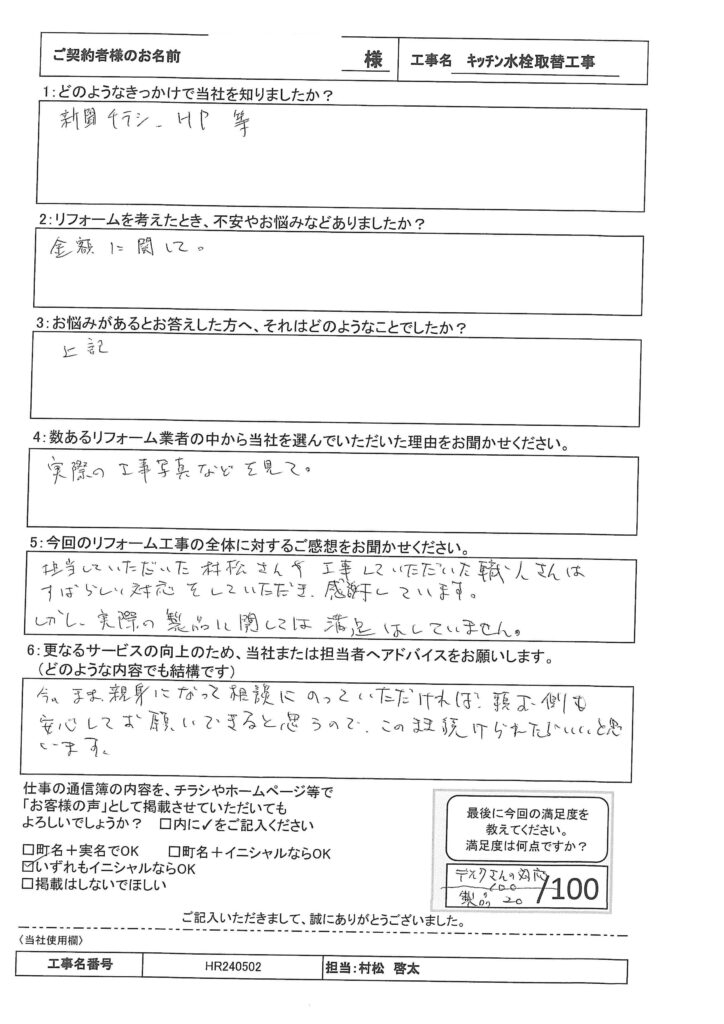 ご契約者様のお名前 様 工事名 キッチン水栓取替工事
1：どのようなきっかけで当社を知りましたか？
新聞チラシ、HP 等
2：リフォームを考えたとき、不安やお悩みなどありましたか？
金額に関して。
3：お悩みがあるとお答えした方へ、それはどのようなことでしたか？
上記
4：数あるリフォーム業者の中から当社を選んでいただいた理由をお聞かせください。
実際の工事写真などを見て。
5：今回のリフォーム工事の全体に対するご感想をお聞かせください。
担当していただいた村松さんや工事していただいた職人さんは
すばらしい対応をしていただき、感謝しています。
しかし、実際の製品に関しては満足はしていません。
6：更なるサービスの向上のため、当社または担当者へアドバイスをお願いします。
（どのような内容でも結構です）
今のまま親身になって相談にのっていただければ、頼む側も
安心してお願いできると思うので、このまま続けられたらいいと思
います。
仕事の通信簿の内容を、チラシやホームページ等で
「お客様の声」として掲載させていただいても
よろしいでしょうか？ □内に✓をご記入ください
□町名＋実名でOK □町名＋イニシャルならOK
☑いずれもイニシャルならOK
□掲載はしないでほしい
最後に今回の満足度を
教えてください。
満足度は何点ですか？
さんの対応
100
製品 20
/100
ご記入いただきまして、誠にありがとうございました。
〈当社使用欄〉
工事名番号 HR240502 担当：村松 啓太